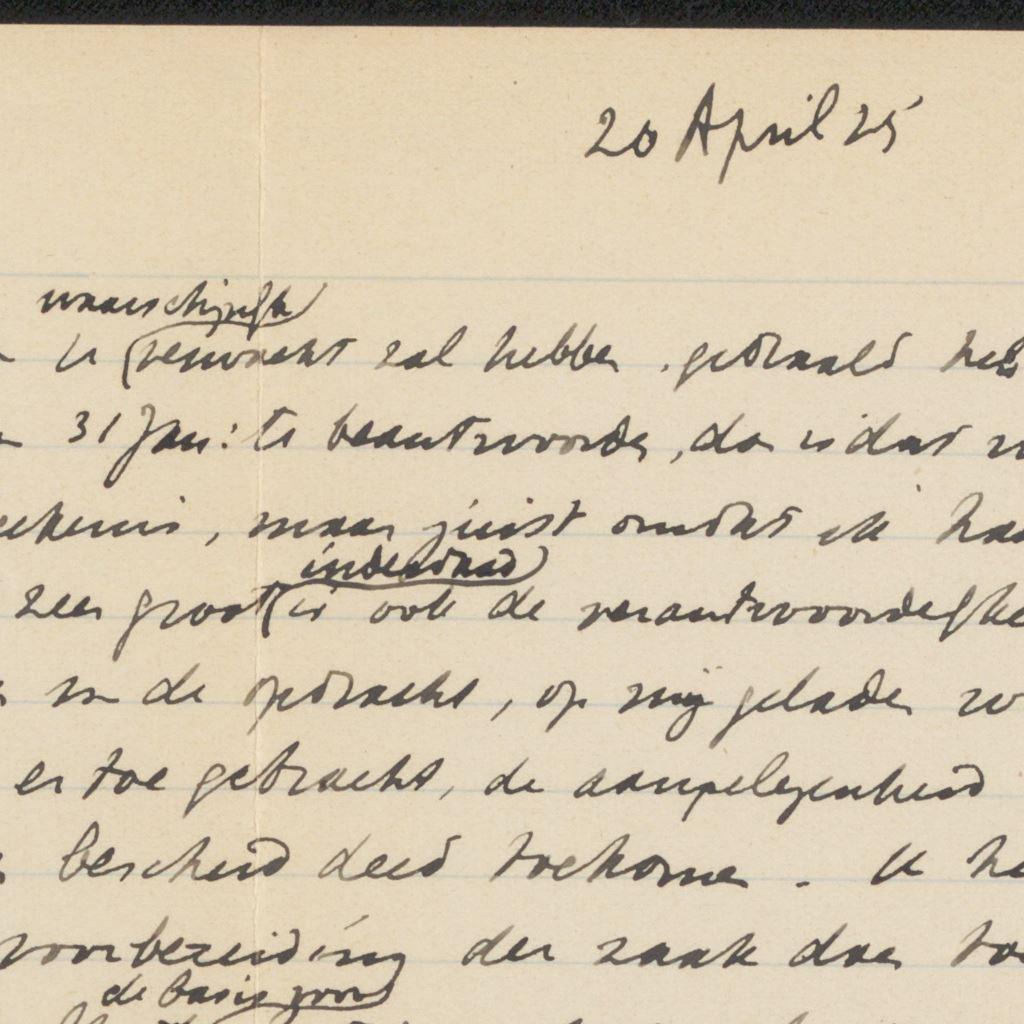 20 April 25
waarschijnlijk
U verwacht zal hebben, gedraald heb
31 Jan: te beantwoorden, dan is dat
maar juist omdat ik
inderdaad
zeer groot is ook de verantwoordelijkhe
de opdracht, op mij geladen w
er toe gebracht, de aangelegenheid
bescheid deed toekomen. U he
voorbereiding der zaak doen to
de basis voor